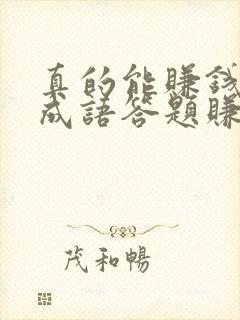 真的能賺錢
成語答題賺
茂和暢